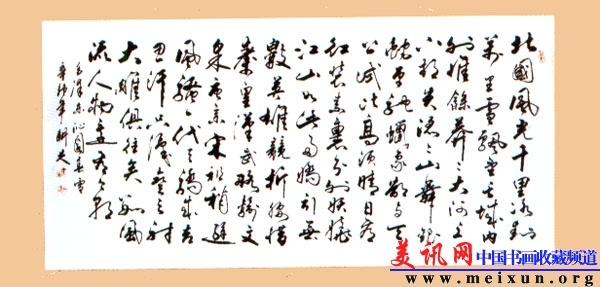 北國風光千里冰封
萬里雪飄望長城內
外惟餘莽々大河上
下頓失滔々山舞銀
蛇原馳蠟象欲与天
公試比高須晴日看
紅裝素裹分外妖嬈
江山如此多嬌引無
數英雄競折腰惜
秦皇漢武略輸文
采唐宗宋祖稍遜
風騷一代天驕成吉
思汗只識彎弓射
大雕俱往矣數風
流人物還看今朝
毛澤東沁園春雪
年
美讯网中国书画收藏频道
www.meixun.org